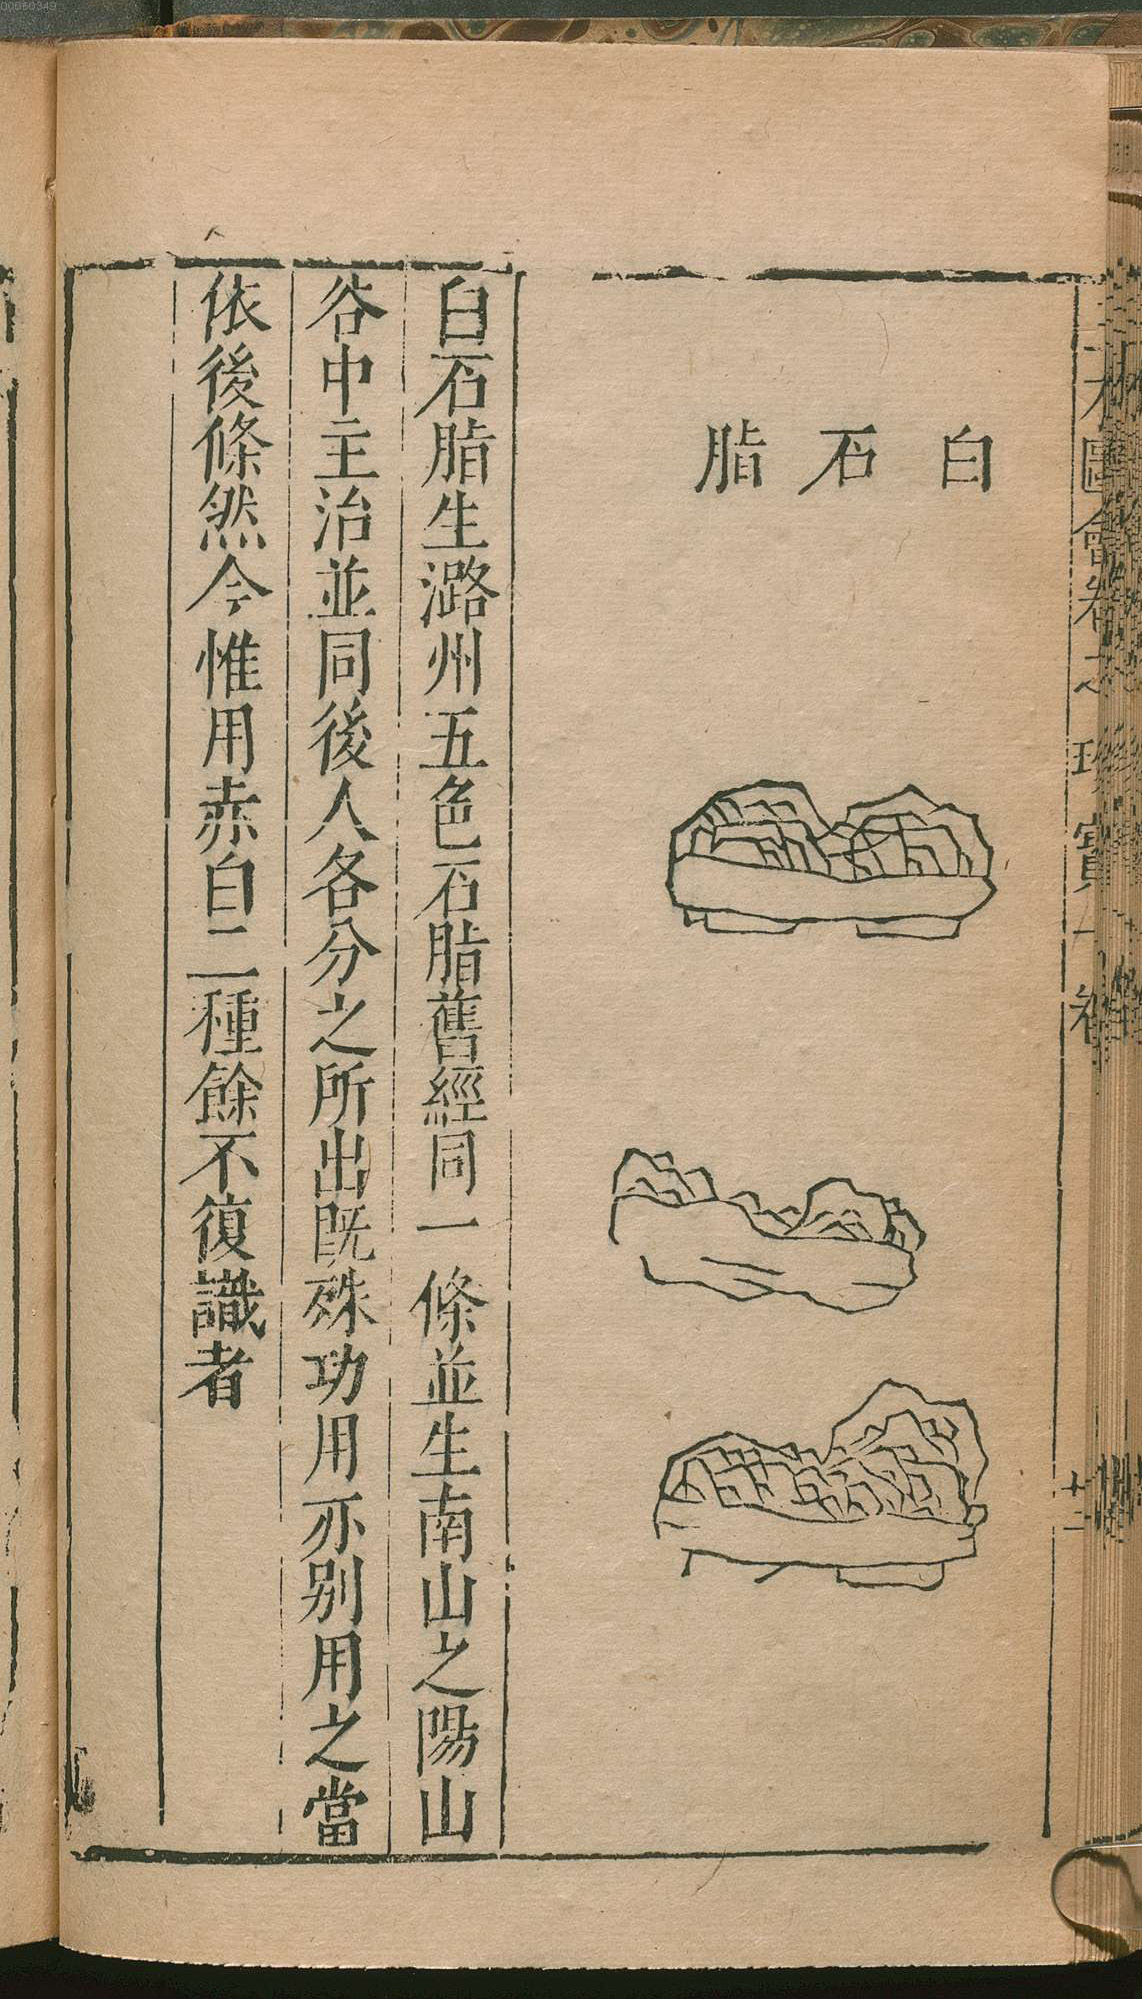 白石脂
白石脂生潞州五色石脂舊經同一條並生南山之陽山
谷中主治並同後人各分之所出既殊功用亦別用之當
依後條然今惟用赤白二種餘不復識者
圖會卷之
珍寶一卷
十二
00050349